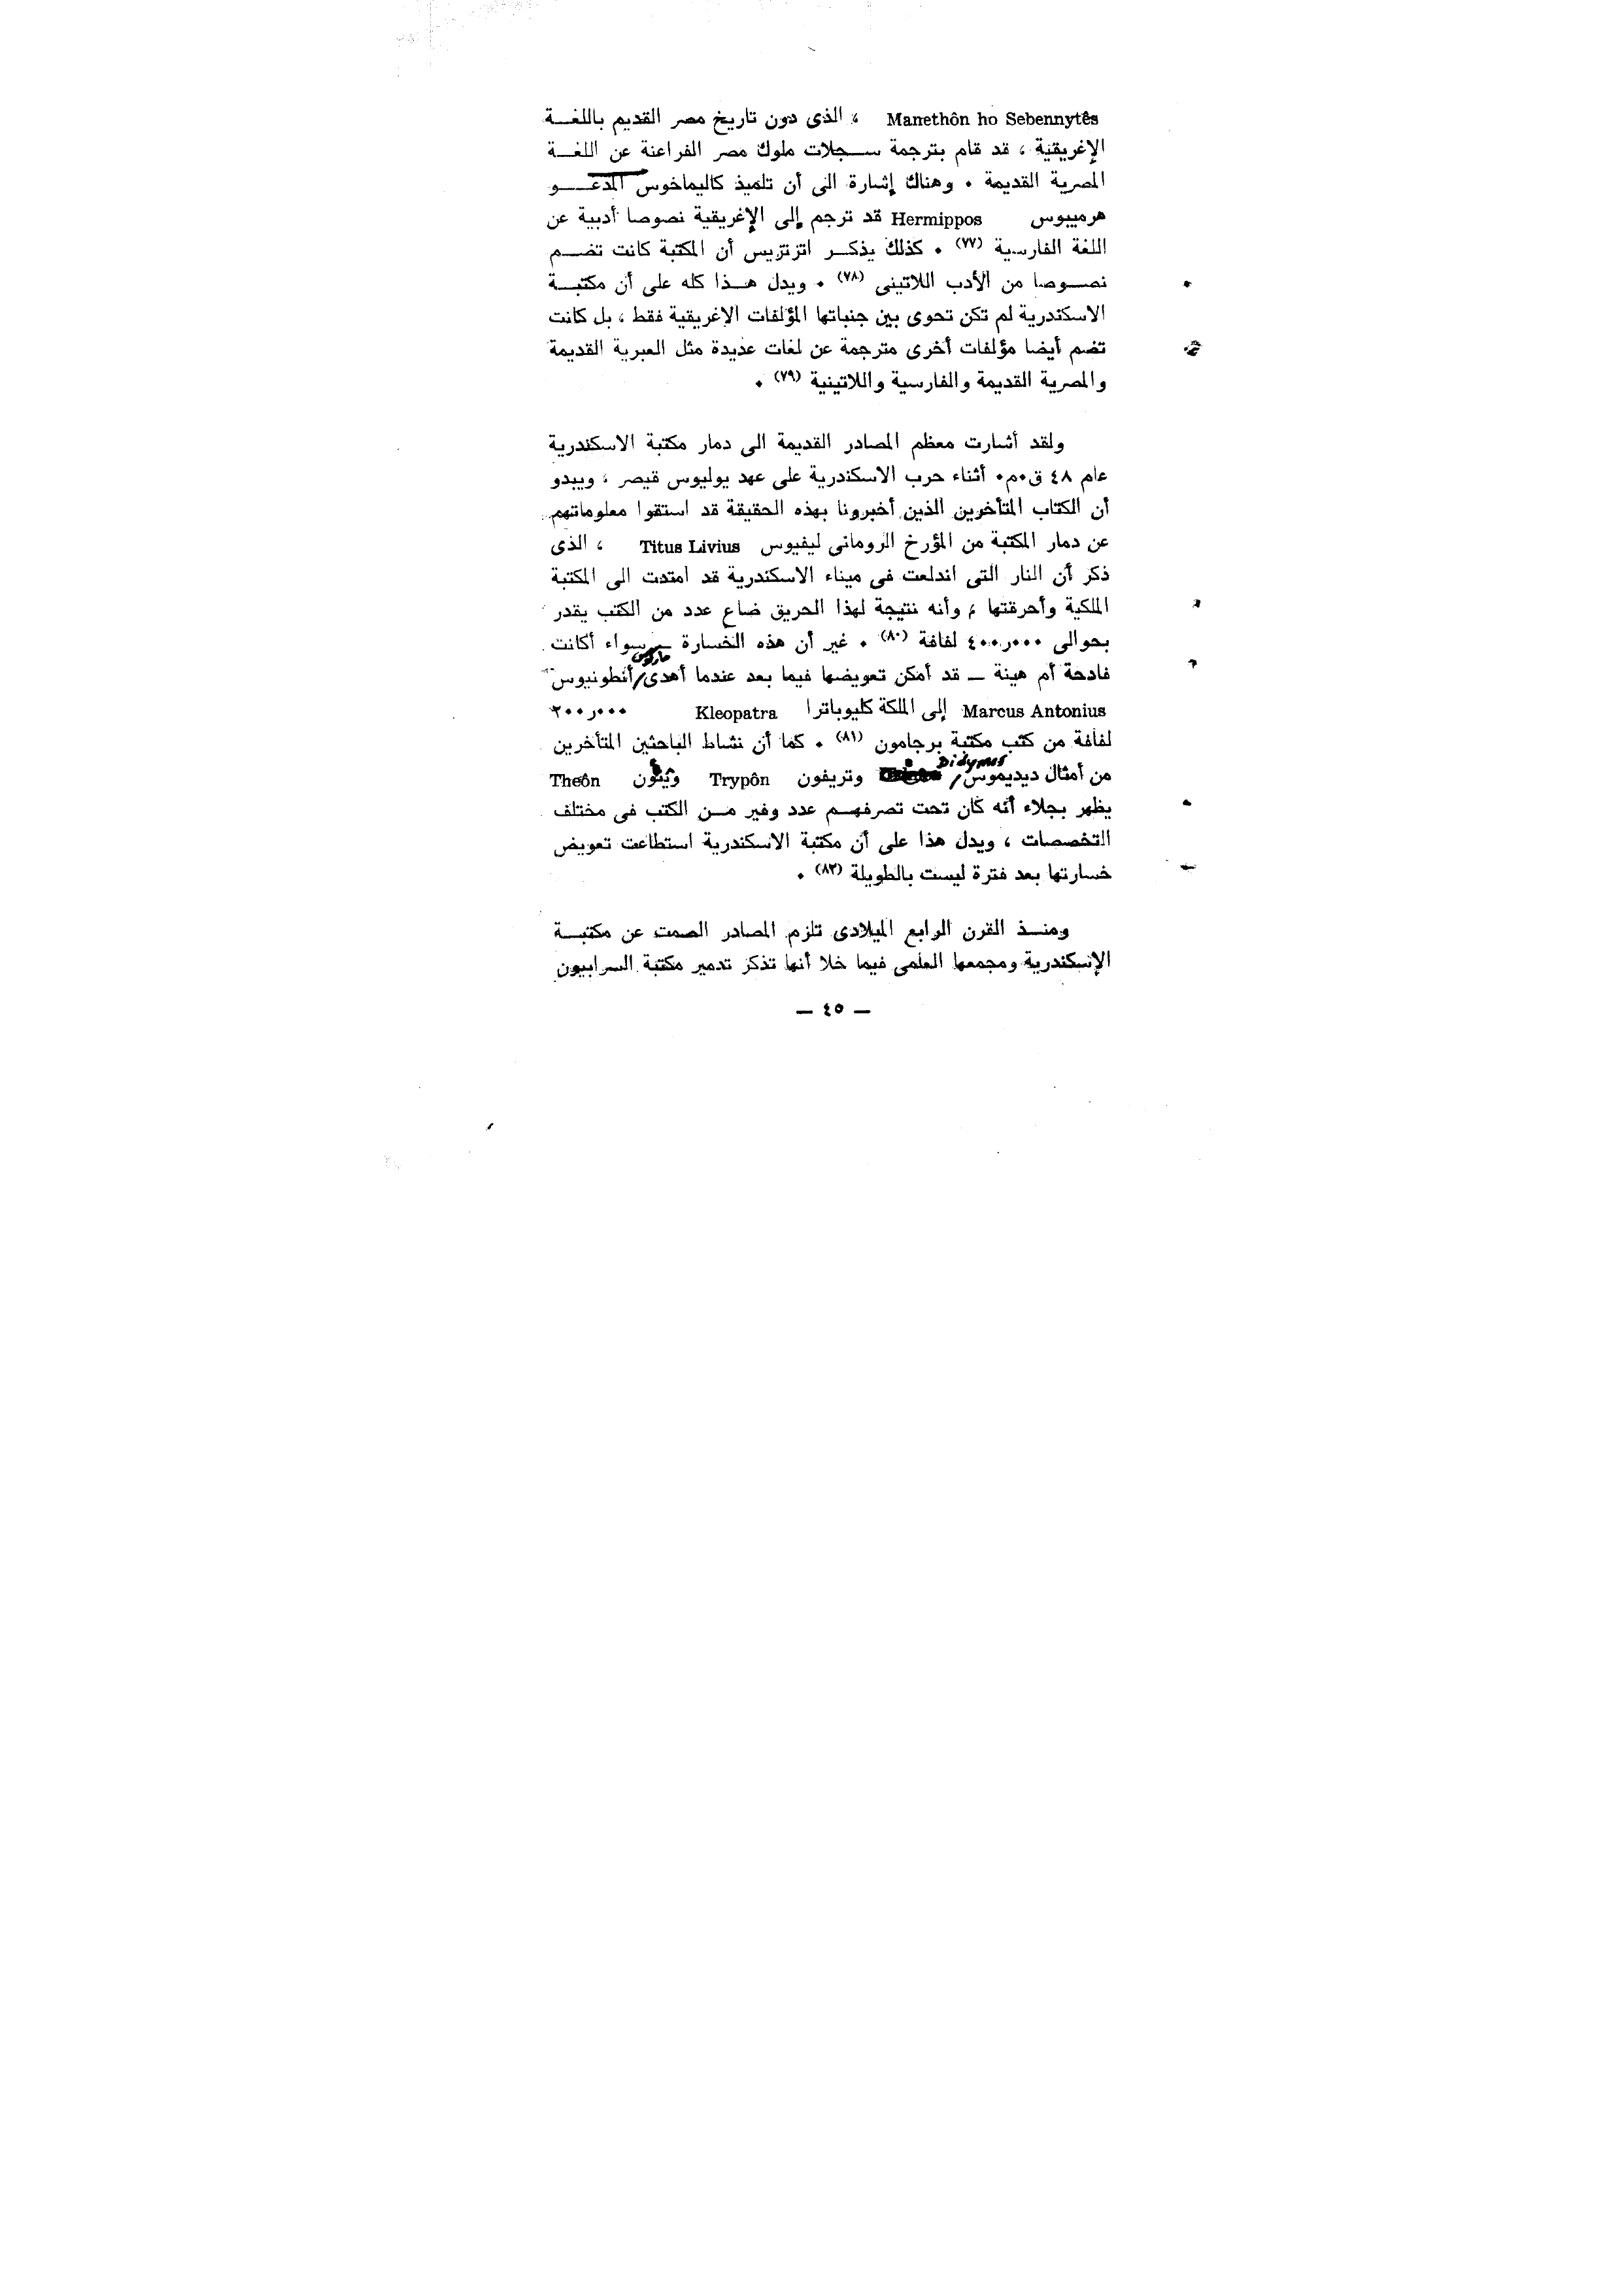 Manethôn ho Sebennytês ، الذى دون تاريخ مصر القديم باللغــة
الإغريقية ، قد قام بترجمة ســجلات ملوك مصر الفراعنة عن اللغــة
المصرية القديمة ٠ وهناك إشارة الى أن تلميذ كاليماخوس المدعــو
هرميبوس Hermippos قد ترجم إلى الإغريقية نصوصا أدبية عن
اللغة الفارسية (٧٧) ٠ كذلك يذكــر اتزتزيس أن المكتبة كانت تضــم
نصــوصا من الأدب اللاتينى (٧٨) ٠ ويدل هــذا كله على أن مكتبــة
الاسكندرية لم تكن تحوى بين جنباتها المؤلفات الإغريقية فقط ، بل كانت
تضم أيضا مؤلفات أخرى مترجمة عن لغات عديدة مثل العبرية القديمة
والمصرية القديمة والفارسية واللاتينية (٧٩) ٠
ولقد أشارت معظم المصادر القديمة الى دمار مكتبة الاسكندرية
عام ٤٨ ق٠م٠ أثناء حرب الاسكندرية على عهد يوليوس قيصر ، ويبدو
أن الكتاب المتأخرين الذين أخبرونا بهذه الحقيقة قد استقوا معلوماتهم
عن دمار المكتبة من المؤرخ الرومانى ليفيوس Titus Livius ، الذى
ذكر أن النار التى اندلعت فى ميناء الاسكندرية قد امتدت الى المكتبة
الملكية وأحرقتها ، وأنه نتيجة لهذا الحريق ضاع عدد من الكتب يقدر
بحوالى ٤٠٠ر٠٠٠ لفافة (٨٠) ٠ غير أن هذه الخسارة ــ سواء أكانت
فادحة أم هينة ــ قد أمكن تعويضها فيما بعد عندما أهدى / ماركوس أنطونيوس
Marcus Antonius إلى الملكة كليوباترا Kleopatra ٢٠٠ر٠٠٠
لفافة من كتب مكتبة برجامون (٨١) ٠ كما أن نشاط الباحثين المتأخرين
من أمثال ديديموس / Didymus وتريفون Trypôn وثيون Theôn
يظهر بجلاء أنه كان تحت تصرفهــم عدد وفير مــن الكتب فى مختلف
التخصصات ، ويدل هذا على أن مكتبة الاسكندرية استطاعت تعويض
خسارتها بعد فترة ليست بالطويلة (٨٢) ٠
ومنــذ القرن الرابع الميلادى تلزم المصادر الصمت عن مكتبــة
الإسكندرية ومجمعها العلمى فيما خلا أنها تذكر تدمير مكتبة السرابيون
— ٤٥ —